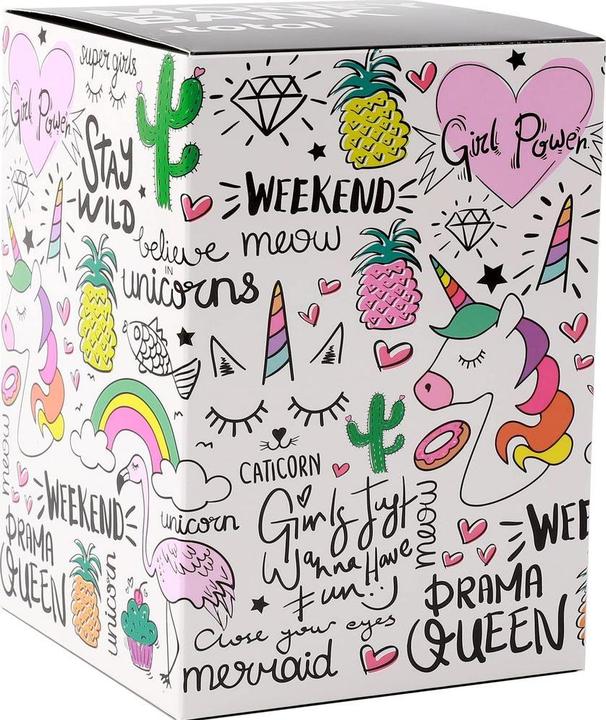 MONEY
BANK
itotal
super girls
Girl Power
STAY
WILD
believe
IN
unicorns
meow
WEEKEND
DRAMA
QUEEN
unicorn
unicorn
WEEKEND
meow
Girl Power
CATICORN
Girls Just
Wanna Have
Fun
meow
Close your eyes
mermaid
WEE
DRAMA
QUEEN